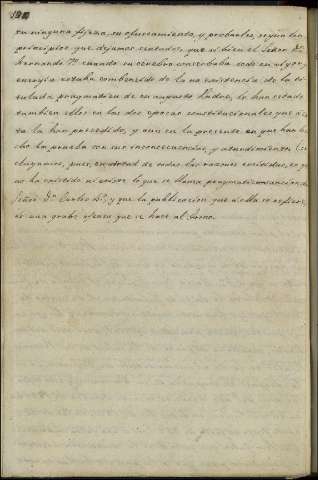 su ninguna fijeza, su ofuscamiento, y probarles, segun los
principios que dejamos sentados, que si bien el Señor Dn.
Fernando 7º. cuando su cerebro conserbaba todo su vigor y
energia estaba combencido de la no existencia de la ti-
tulada pragmatica de su augusto Padre, lo han estado
tambien ellos en las dos epocas constitucionales que á es-
ta la han precedido, y aun en la presente en que han he-
cho la prueba con sus inconsecuencias, y
cluyamos, pues, en virtud de todas las razones emitidas, en que
no ha existido ni existe lo que se llama pragmatica sancion del
Señor Dn. Carlos 4º, y que la publicacion que á ella se refiere,
es una grabe ofensa que se hace al Trono.